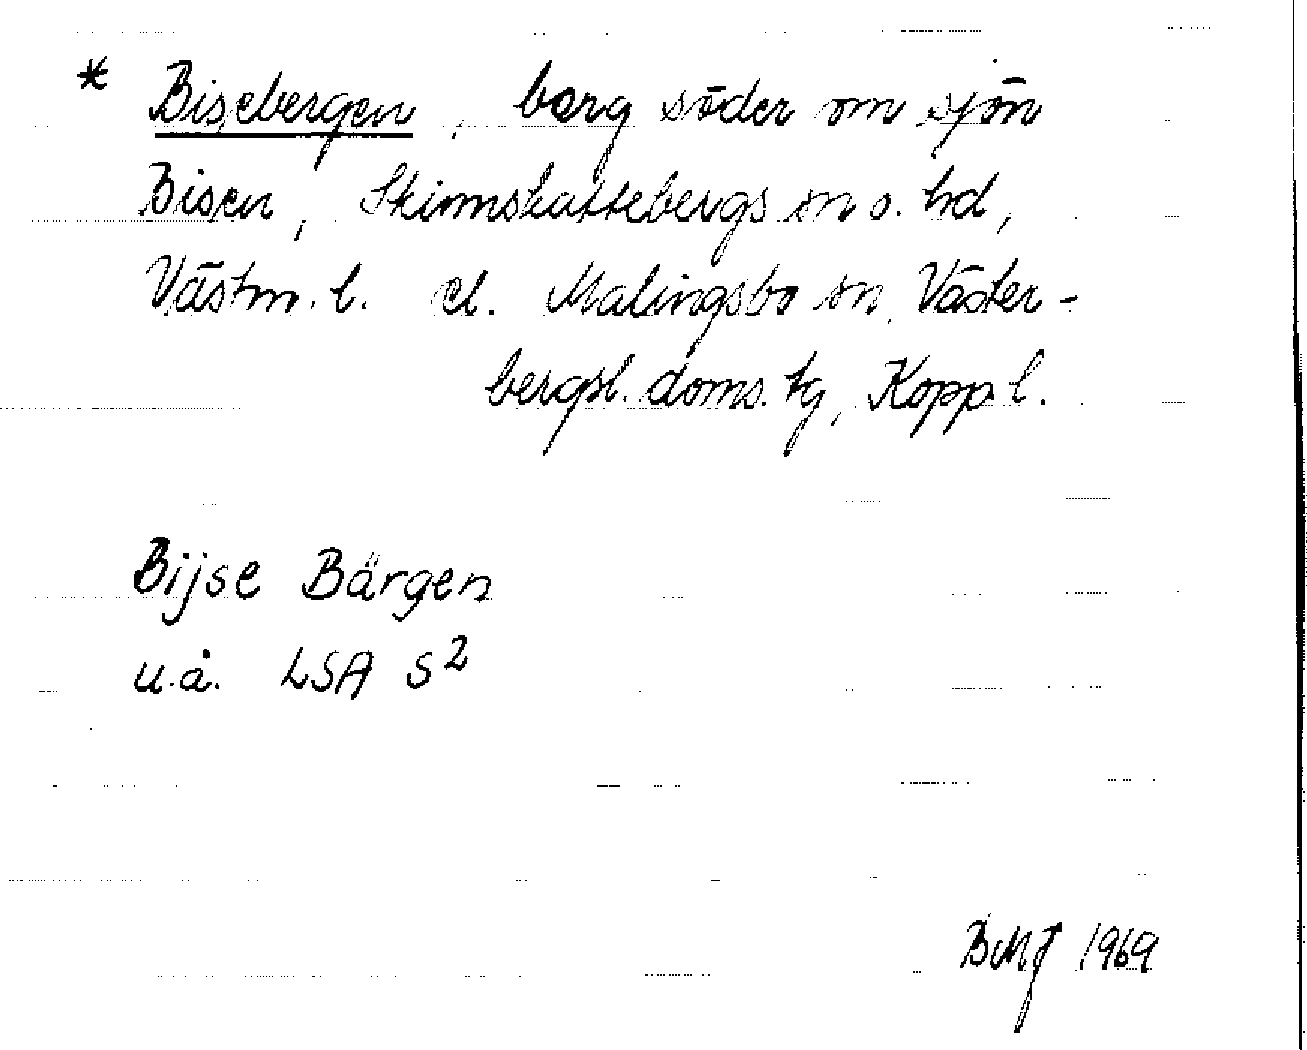 * Bisebergen, berg söder om sjön
Bisen, Skinnskattebergs sn o. hd,
Västm. l. el. Malingsbo sn, Väster-
bergsl. doms. tg, Kopp l.
Bijse Bärgen
u.å. LSA S2
BMJ 1969